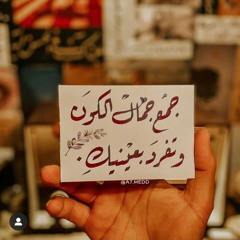 جمع جمال الكون
وتفرد بعينيك.
@A7.MEDO